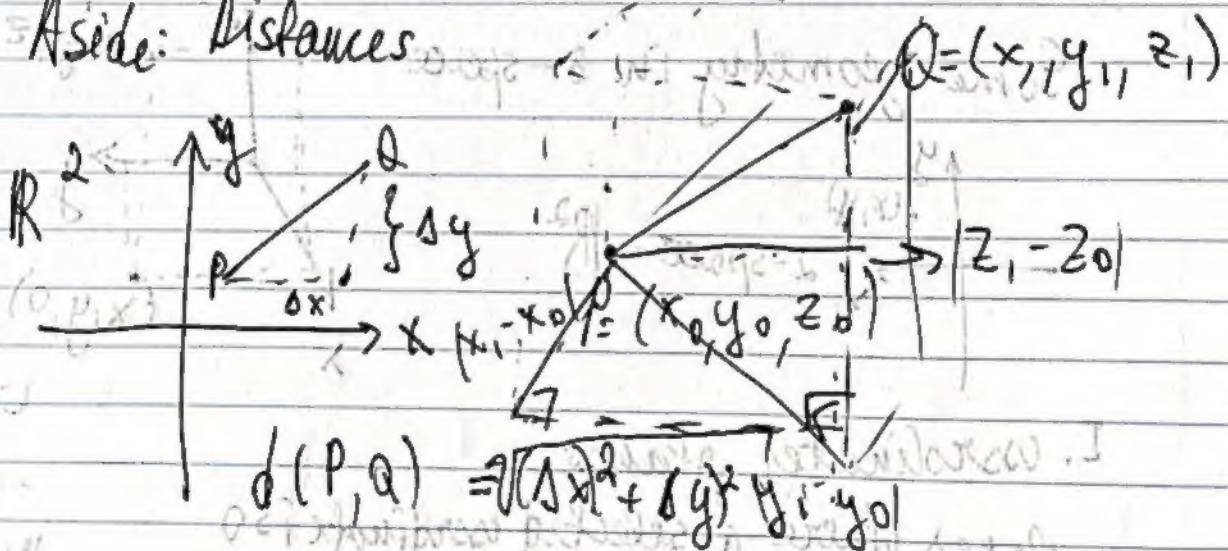 Aside: Distances
Q=(x₁, y₁, z₁)
ℝ²
y
Q
} Δy
P
Δx
x
|z₁-z₀|
|x₁-x₀|
P=(x₀, y₀, z₀)
d(P,Q) = √(Δx)²+Δy)²
|y₁-y₀|